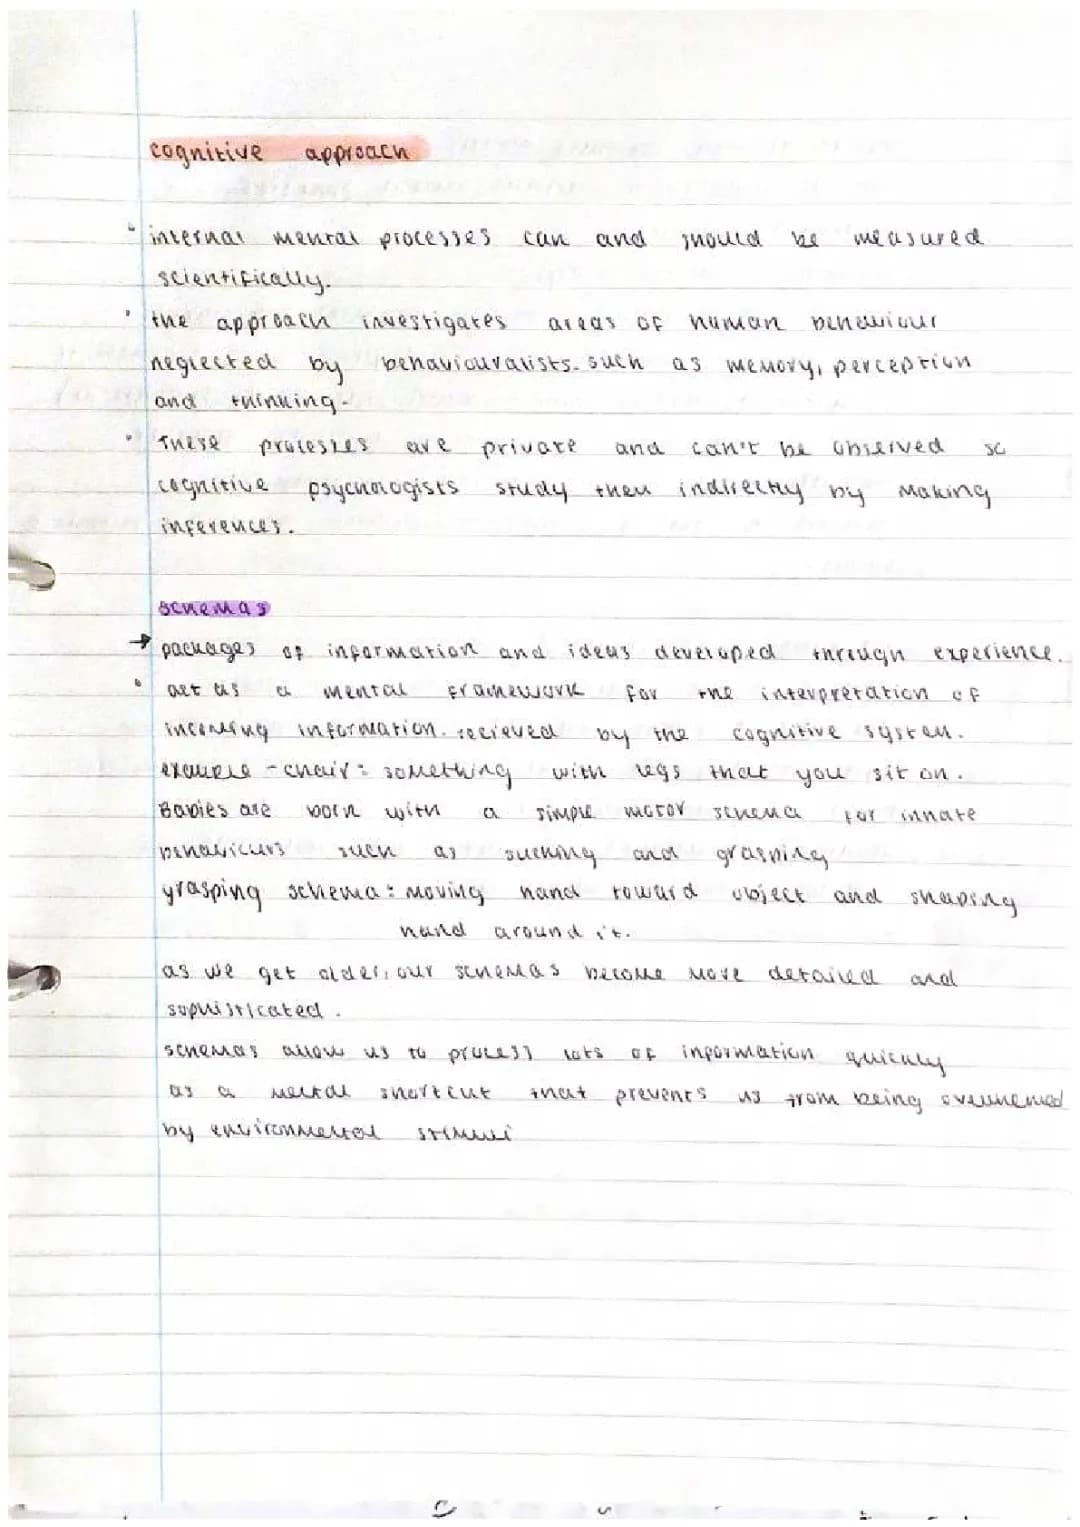 cognitive approach
• internal mental processes can and should be measured
scientifically.
• the approach investigates areas of human behaviour
neglected by behaviouralists. such as memory, perception
and thinking.
• These processes are private and can't be observed so
cognitive psychologists study them indirectly by making
inferences.
schemas
→ packages of information and ideas developed through experience.
• act as a mental framework for the interpretation of
incoming information. recieved by the cognitive system.
example - chair: something with legs that you sit on.
Babies are born with a simple motor schema for innate
behaviours such as sucking and grasping
grasping schema: moving hand toward object and shaping
hand around it.
as we get older, our schemas become more detailed and
sophisticated.
schemas allow us to process lots of information quickly
as a mental shortcut that prevents us from being
by environmental stimuli